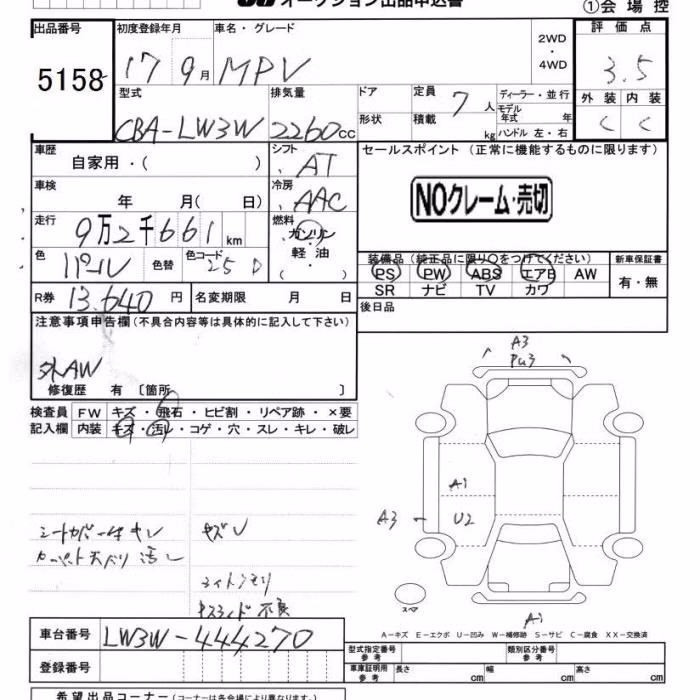 オークション出品申込書
①会場控
出品番号
5158
初度登録年月
17 9月
車名・グレード
MPV
2WD
・
4WD
評価点
3.5
外装 内装
C C
型式
CBA-LW3W
排気量
2260cc
ドア
形状
定員
7人
積載
kg
ディーラー・並行
モデル
年式 年
ハンドル 左・右
車歴
自家用・( )
シフト
AT
車検
年 月( 日)
冷房
AAC
走行
9万2千661km
燃料
ガソリン
・
軽油
・( )
色
パール
色替
色コード
25D
R券 13.640円
名変期限 月 日
セールスポイント (正常に機能するものに限ります)
NOクレーム・売切
装備品(純正品に限り○をつけてください)
PS PW ABS エアB AW
SR ナビ TV カワ
新車保証書
有・無
後日品
注意事項申告欄(不具合内容等は具体的に記入して下さい)
外AW
修復歴 有 〔箇所 〕
検査員
記入欄
FW キズ・飛石・ヒビ割・リペア跡・×要
内装 キズ・汚レ・コゲ・穴・スレ・キレ・破レ
A3
A1
A3
U2
A1
スペア
A-キズ E-エクボ U-凹み W-補修跡 S-サビ C-腐食 XX-交換済
車台番号 LW3W-444270
登録番号
型式指定番号
参考
類別区分番号
参考
車庫証明用
参考
長さ cm
幅 cm
高さ cm
希望出品コーナー(コーナーは各会場により異なります)